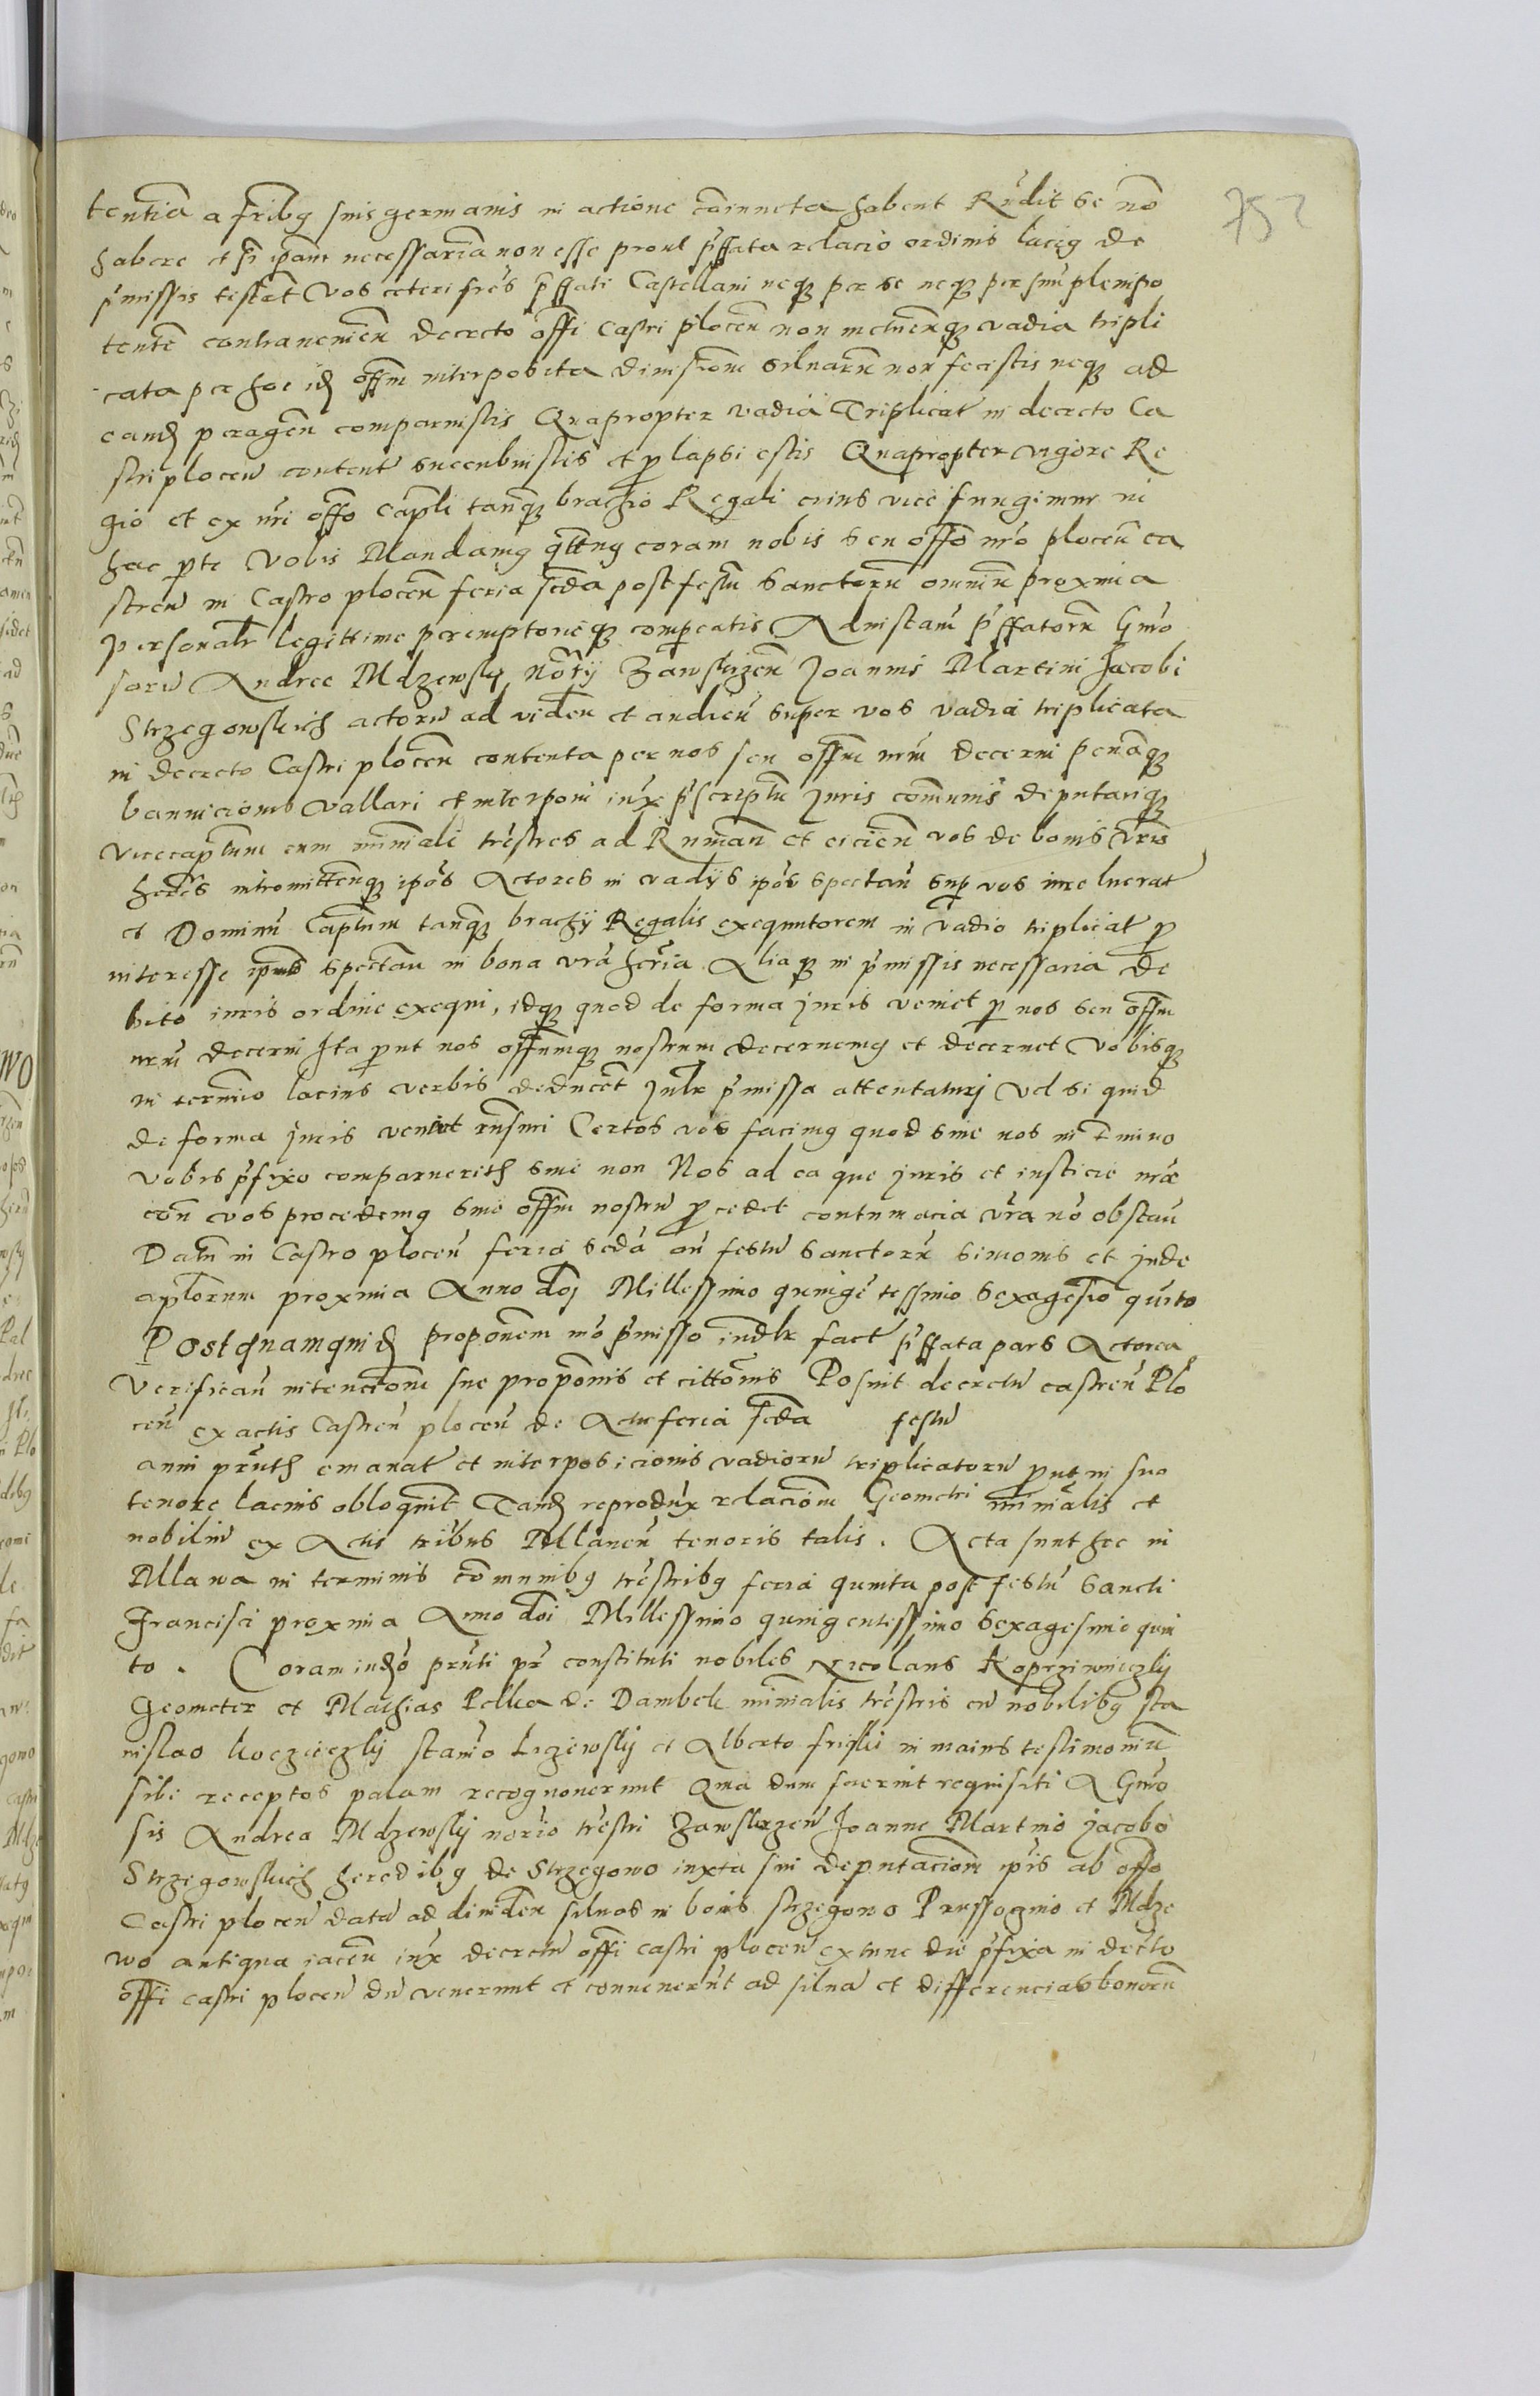 752
tentia a fribg suis germanis in actione coniuncta habent Rndit se no
habere et si ipam necessaria non esse prout pffata relacio ordinis lacig de
pmissis testat Vos ceteri fres pffati Castellani neqz per se neqz per suu plenipo
tente contraneniem decreto offi Castri plocen non metuenqz vadia tripli
cata per hoc id offm interposita diuisione siluaru non fecistis neqz ad
eand peragen comparuistis Quapropter vadia Triplicat in decreto Ca
stri plocen content succubuistis et plapsi estis Quapropter vigore Re
gio et ex nri offo Capli tanqz brachio Regali cuius vice fungimur in
hac pte Vobis Mandamg qttng coram nobis seu offo nro plocen ca
stren in Castro plocen feria scda post festu Sanctoru omniu proxima
Personalr legittime peremptorieqz compeatis Ad instam pffatoru Gnro
soru Andree Mdzewsky Notrij Zawskrzen Joannis Martini Jacobi
Strzegowskich actoru ad viden et audien super vos vadia triplicata
in decreto Castri plocen contenta per nos seu offm nrm decerni penaqz
bannicionis vallari et interponi iux pscriptu Juris communis deputariqz
vicecaptum cum minrali trestres ad Ruman et eicien vos de bonis vris
heres intromittenqz ipos Actores in vadijs ipos spectan sup vos irre lucrat
et Dominu Captum tanqz brachij Regalis exequutorem in vadio triplicat p
interesse ipius spectan in bona vra heria Aliaqz in pmissis necessaria de
bito iuris ordine exequi, idqz quod de forma juris veniet p nos seu offm
nrm decerni Ita put nos offmqz nostrum decernemg et decernet Vobisqz
in termino lacius verbis deducet Inlr pmissa attentaturj Vel si quid
de forma juris veniet rnsuri Certos vos facimg quod siue vos in tmino
vobis pfixo comparueritis siue non Nos ad ea que juris et iusticie nre
con vos procedemg siue offm nostru pcedet contumacia vra no obstan
Datu in Castro plocen feria scda an festu Sanctoru Simonis et jude
aplorum proxima Anno doj Millessimo quingetessimo Sexagesio quito
Postquamquid proponem mo pmisso iudlr fact pffata pars Actorea
Verifican intenciom sue proponis et cittonis Posuit decretu castren Plo
cen ex actis Castren plocen de Actu feria scda festu
anni prnth emanat et interposicionis vadioru triplicatoru put in suo
tenore lacius obloquit Tand reprodux relaciom Geometri minralis et
nobiliu ex Actis tribus Mllauen tenoris talis. Acta sunt hec in
Mllawa in terminis comunibg trestribg feria quinta post festu Sancti
Francisci proxima Anno doi Millessimo quingentessimo Sexagesimo quin
to. Coram iudo pruti pr constituti nobiles Nicolaus Koprziwniczky
Geometer et Mathias Pelka de Dambsk minralis trestris cu nobilibg sta
nislao Koczieczky stanio Liziewsky et Alberto friski in maius testimoniu
sibi receptos palam recognouerunt Qma dum fuerint requisiti A Gnro
sis Andrea Mdzewsky norio trestri Zawskrzen Joanne Martino jacobo
Strzegowskich heredibg de Strzegowo iuxta sui deputaciom ipis ab offo
Castri plocen data ad diuiden siluas in bonis strzegowo Prussoczino et Mdze
wo antiqua iacen iux decretu offi castri plocen extunc die pfixa in decto
offi castri plocen du venerunt et conuenerut ad silua et differencias bonoru